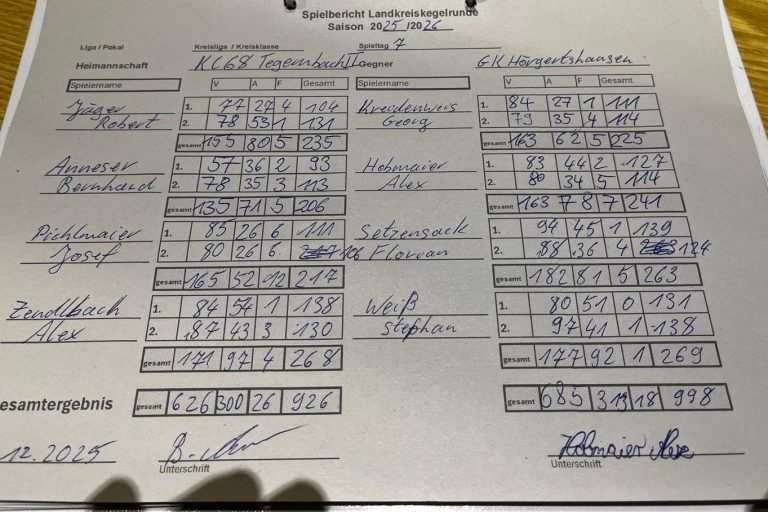 Spielbericht Landkreiskegelrunde
Saison 2025/2026
Liga / Pokal Kreisliga / Kreisklasse Spieltag 7
Heimannschaft KC68 Tegernbach II Gegner GK Hörgertshausen
Spielername V A F Gesamt Spielername V A F Gesamt
Jäger 1. 77 27 4 104 Kreidenweis 1. 84 27 1 111
Robert 2. 78 53 1 131 Georg 2. 79 35 4 114
gesamt 155 80 5 235 gesamt 163 62 5 225
Anneser 1. 57 36 2 93 Hobmaier 1. 83 44 2 127
Bernhard 2. 78 35 3 113 Alex 2. 80 34 5 114
gesamt 135 71 5 206 gesamt 163 78 7 241
Pichlmaier 1. 85 26 6 111 Setzensack 1. 94 45 1 139
Josef 2. 80 26 6 106 Florian 2. 88 36 4 124
gesamt 165 52 12 217 gesamt 182 81 5 263
Zendlbach 1. 84 54 1 138 Weiß 1. 80 51 0 131
Alex 2. 87 43 3 130 Stephan 2. 97 41 1 138
gesamt 171 97 4 268 gesamt 177 92 1 269
esamtergebnis gesamt 626 300 26 926 gesamt 685 313 18 998
12.2025 Hobmaier Alex
Unterschrift Unterschrift